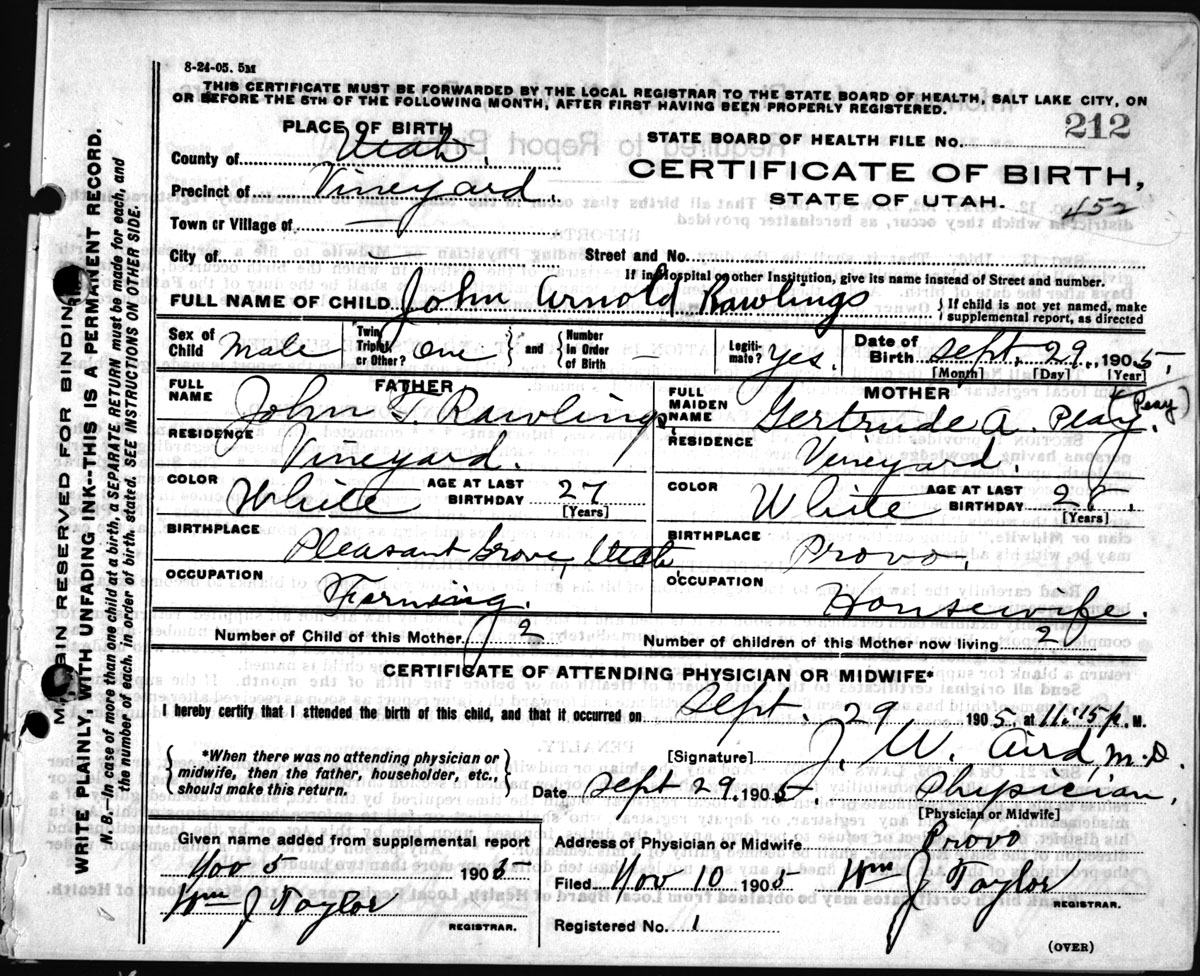 8-24-05. 5M
THIS CERTIFICATE MUST BE FORWARDED BY THE LOCAL REGISTRAR TO THE STATE BOARD OF HEALTH, SALT LAKE CITY, ON
OR BEFORE THE 5TH OF THE FOLLOWING MONTH, AFTER FIRST HAVING BEEN PROPERLY REGISTERED.
PLACE OF BIRTH
STATE BOARD OF HEALTH FILE NO. 212
County of Utah,
CERTIFICATE OF BIRTH,
Precinct of Vineyard
STATE OF UTAH. 452
Town or Village of —
City of — Street and No.
If in Hospital or other Institution, give its name instead of Street and number.
FULL NAME OF CHILD John Arnold Rawlings { If child is not yet named, make
supplemental report, as directed
Sex of Child Male
Twin, Triplet or Other? One } and { Number in Order of Birth —
Legitimate? Yes.
Date of Birth Sept. 29, 1905,
[Month] [Day] [Year]
FATHER
FULL NAME John T. Rawlings
RESIDENCE Vineyard.
COLOR White AGE AT LAST BIRTHDAY 27
[Years]
BIRTHPLACE Pleasant Grove, Utah
OCCUPATION Farming.
MOTHER
FULL MAIDEN NAME Gertrude A. Peay. (Peay)
RESIDENCE Vineyard.
COLOR White AGE AT LAST BIRTHDAY
[Years]
BIRTHPLACE Provo,
OCCUPATION Housewife.
Number of Child of this Mother 2 Number of children of this Mother now living 2
CERTIFICATE OF ATTENDING PHYSICIAN OR MIDWIFE*
I hereby certify that I attended the birth of this child, and that it occurred on Sept. 29, 1905, at 11:15 p. M.
{ *When there was no attending physician or
midwife, then the father, householder, etc.,
should make this return. }
[Signature] J. W. Aird, M.D.
Date Sept 29, 1905 Physician,
[Physician or Midwife]
Given name added from supplemental report
Nov 5 1905
Wm J Taylor
REGISTRAR.
Address of Physician or Midwife Provo
Filed Nov 10 1905 Wm J Taylor
REGISTRAR.
Registered No. 1
(OVER)
MARGIN RESERVED FOR BINDING
WRITE PLAINLY, WITH UNFADING INK--THIS IS A PERMANENT RECORD.
N. B.—In case of more than one child at a birth, a SEPARATE RETURN must be made for each, and
the number of each, in order of birth, stated. SEE INSTRUCTIONS ON OTHER SIDE.